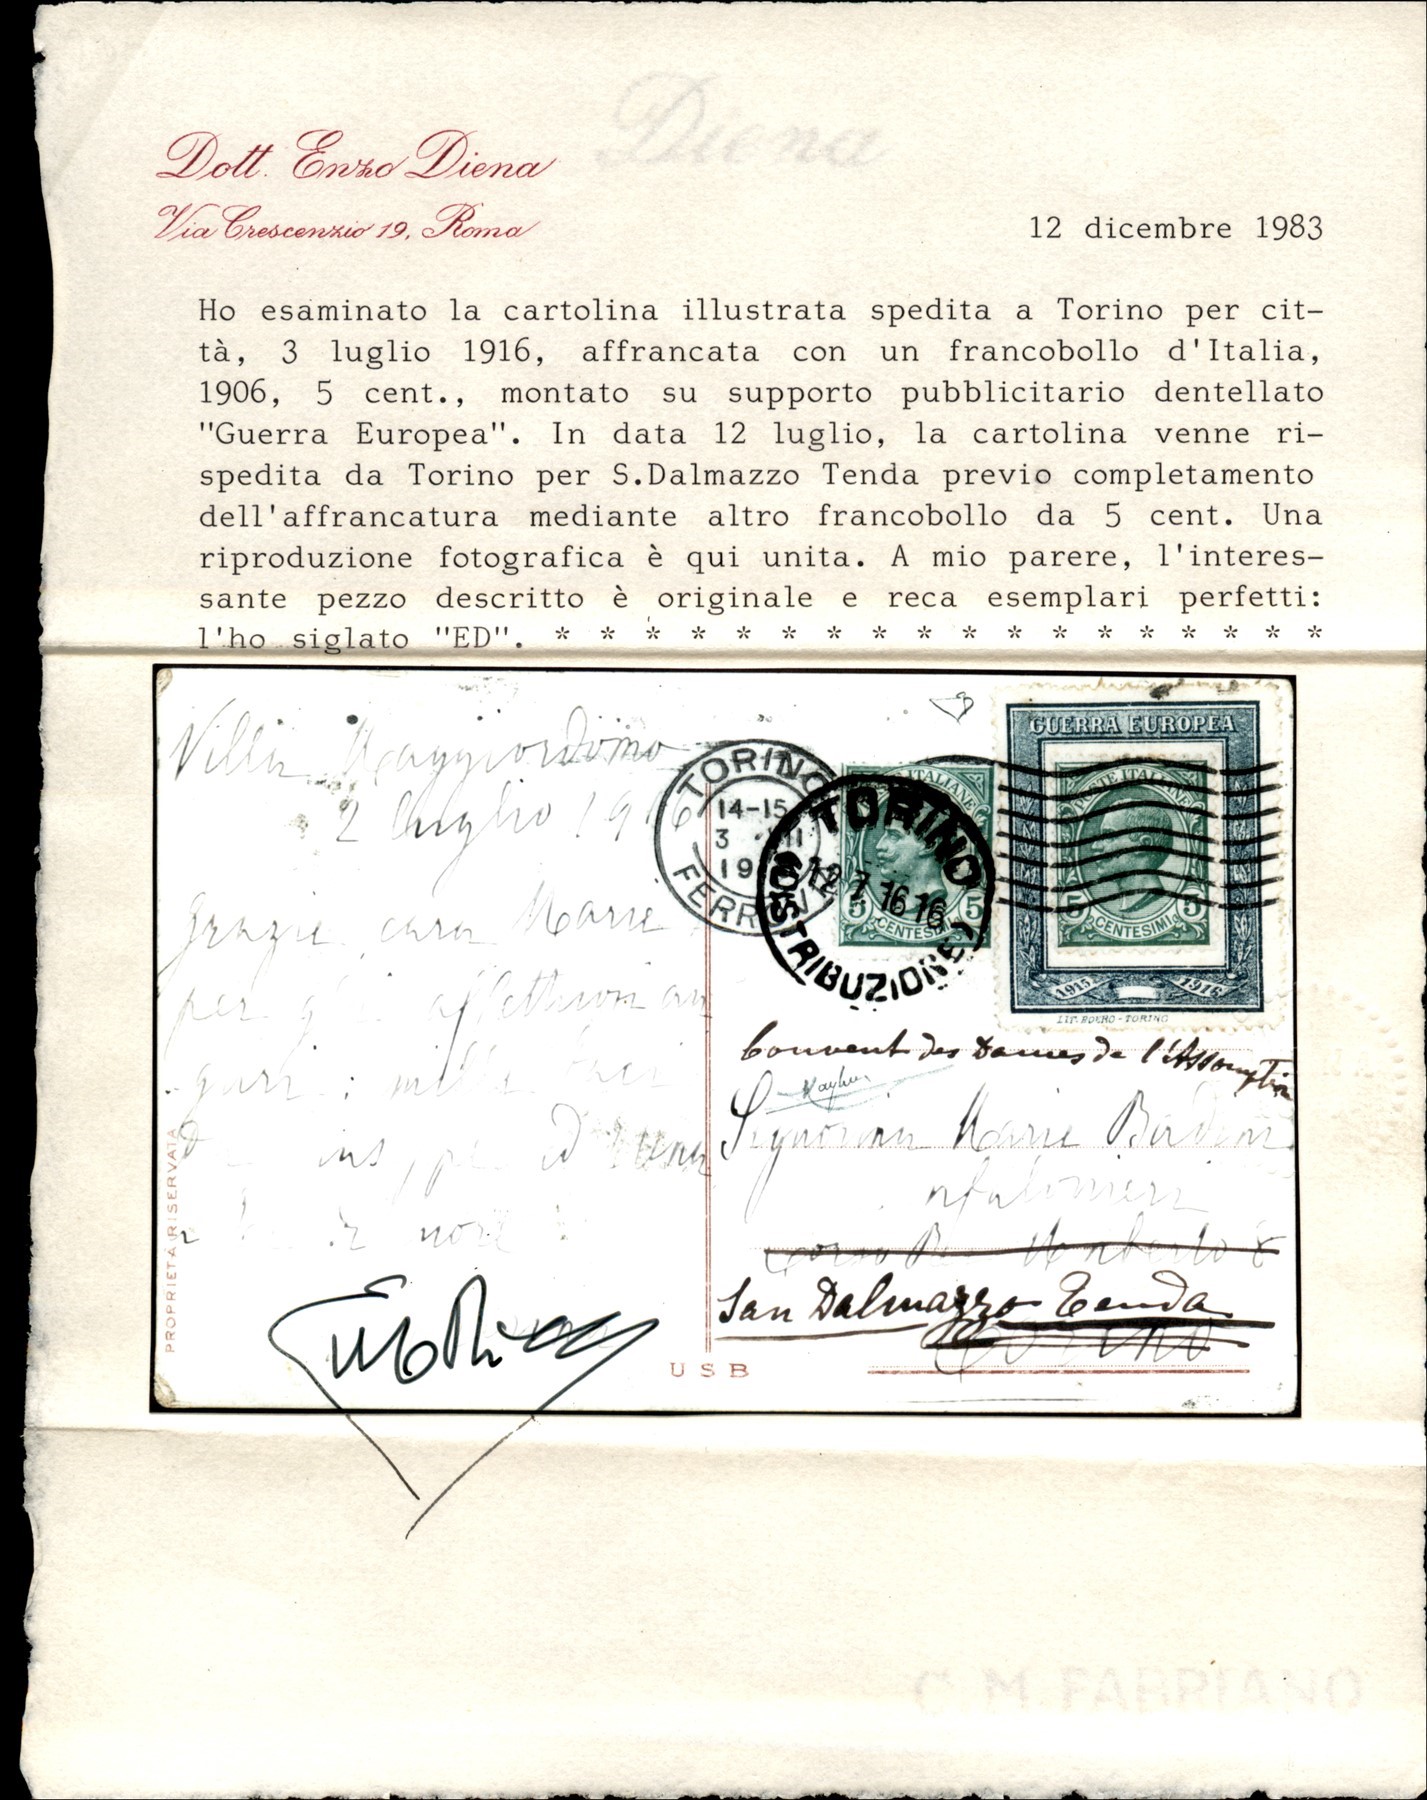 Diena
Dott. Enzo Diena
Via Crescenzio 19, Roma
12 dicembre 1983
Ho esaminato la cartolina illustrata spedita a Torino per cit-
tà, 3 luglio 1916, affrancata con un francobollo d'Italia,
1906, 5 cent., montato su supporto pubblicitario dentellato
"Guerra Europea". In data 12 luglio, la cartolina venne ri-
spedita da Torino per S.Dalmazzo Tenda previo completamento
dell'affrancatura mediante altro francobollo da 5 cent. Una
riproduzione fotografica è qui unita. A mio parere, l'interes-
sante pezzo descritto è originale e reca esemplari perfetti:
l'ho siglato "ED". * * * * * * * * * * * * * * * * * *
Villa Maggiordomo
2 luglio 1916
Grazie cara Marie
per gli
mille
PROPRIETÀ RISERVATA
USB
TORINO
14-15
3 VII
19
FERROVIA
POSTE ITALIANE
5 CENTESIMI 5
TORINO
12 7 16 16
DISTRIBUZIONE
GUERRA EUROPEA
POSTE ITALIANE
5 CENTESIMI 5
1915 1916
LIT. ROERO - TORINO
Couvent des Dames de l'Assomption
Signorina Marie
Corso Re Umberto 8
San Dalmazzo Tenda
Torino
C.M. FABRIANO